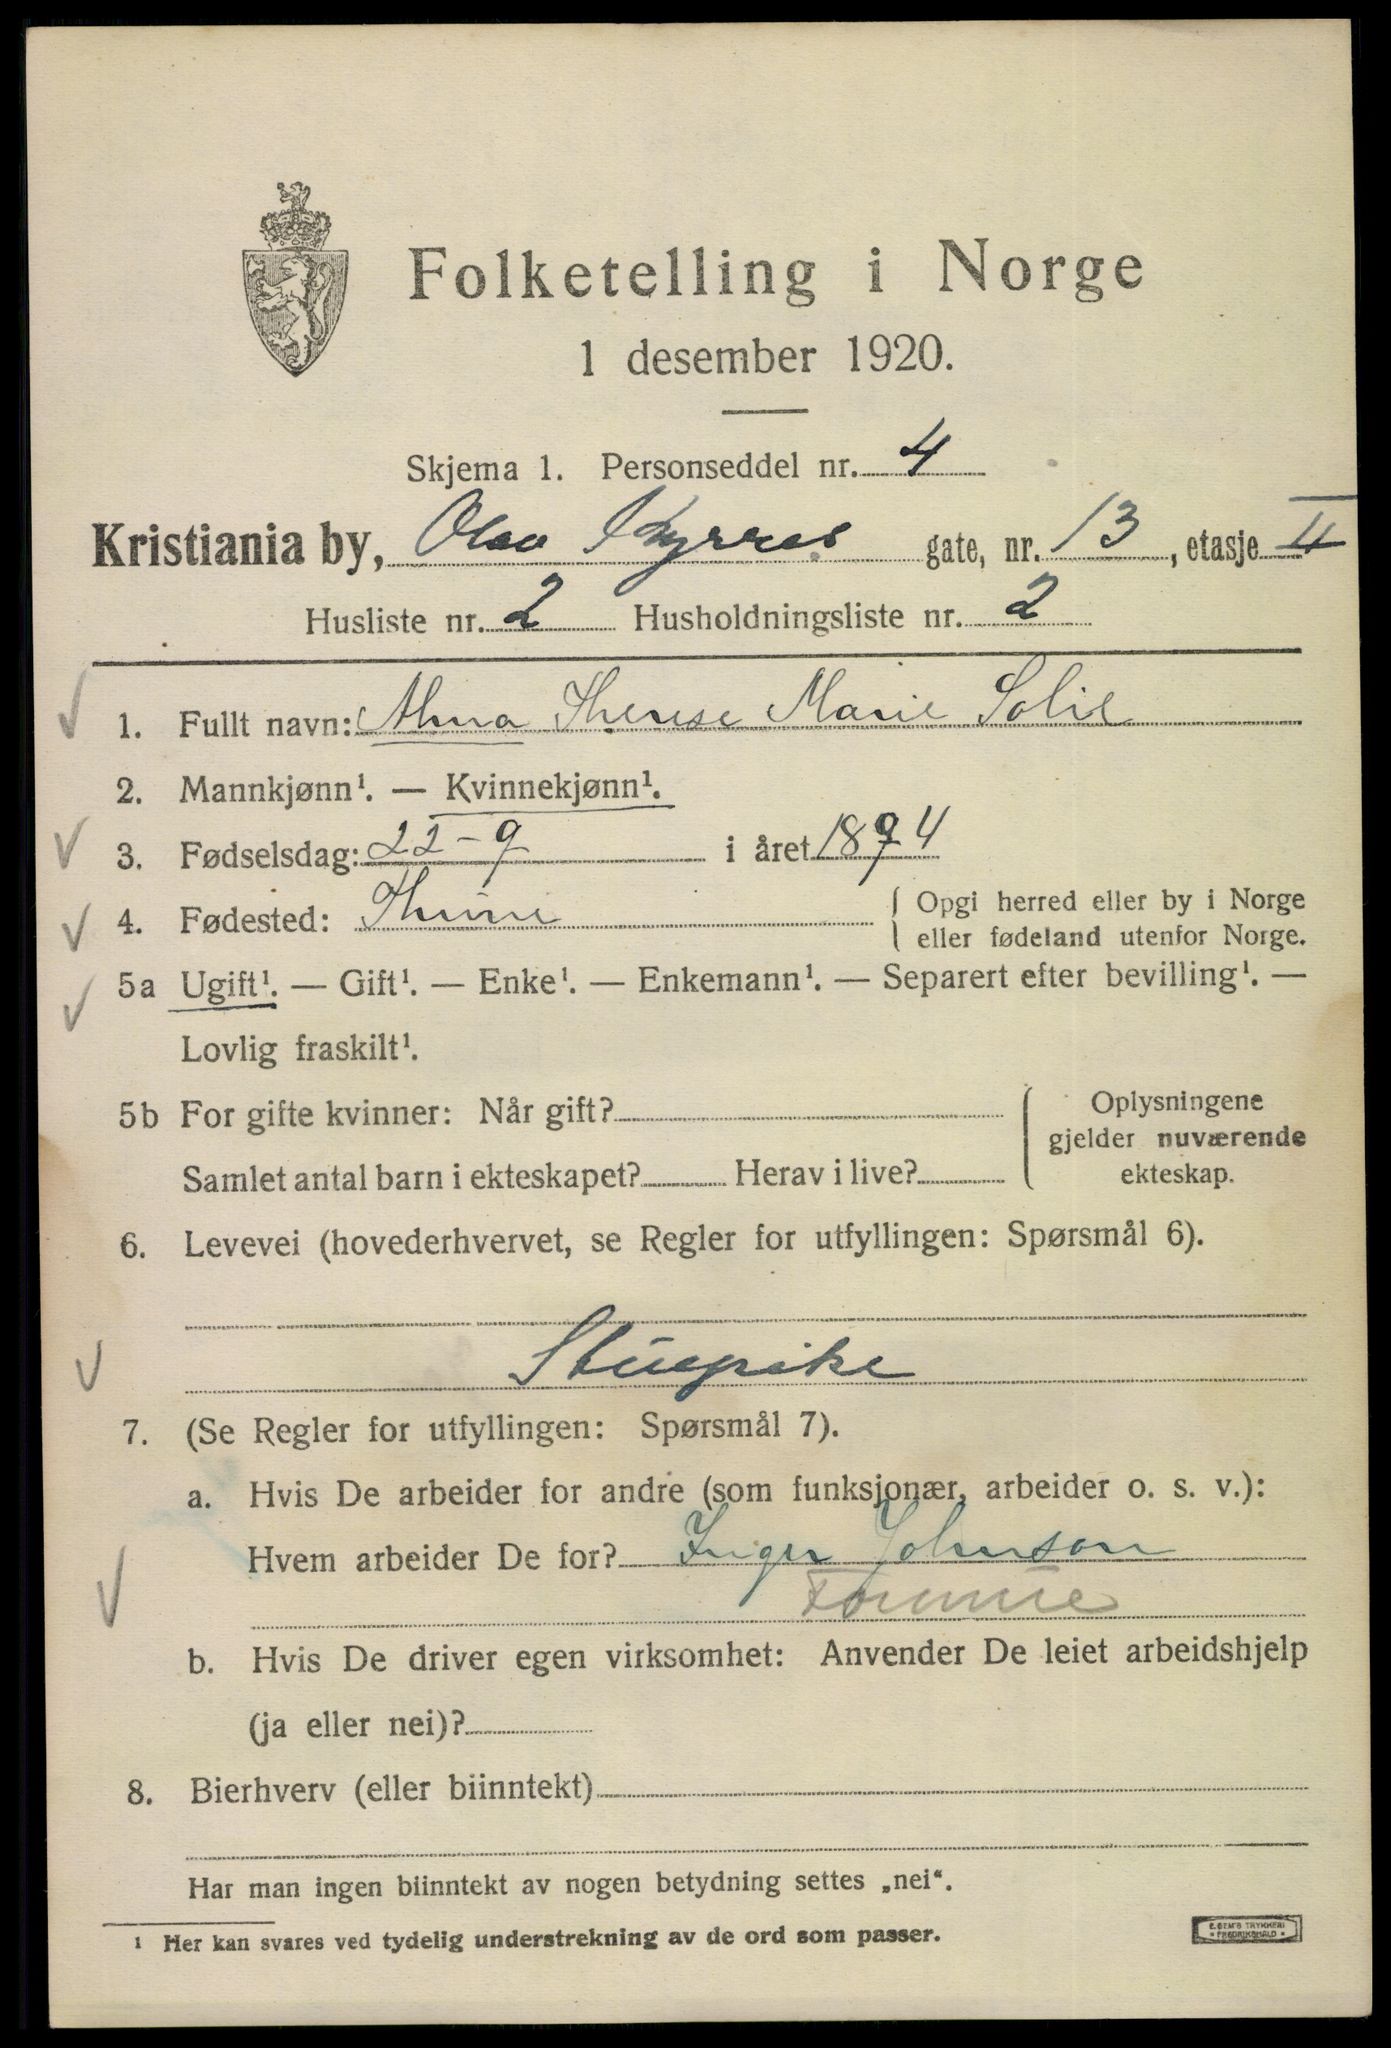 Folketelling i Norge
1 desember 1920.
Skjema 1. Personseddel nr. 4
Kristiania by, Olav Kyrres gate, nr. 13, etasje II
Husliste nr. 2 Husholdningsliste nr. 2
1. Fullt navn: Alma Therese Marie Solie
2. Mannkjønn¹. — Kvinnekjønn¹.
3. Fødselsdag: 22-9 i året 1894
4. Fødested: { Opgi herred eller by i Norge
eller fødeland utenfor Norge.
5a Ugift¹. — Gift¹. — Enke¹. — Enkemann¹. — Separert efter bevilling¹. —
Lovlig fraskilt¹.
5b For gifte kvinner: Når gift? { Oplysningene
gjelder nuværende
Samlet antal barn i ekteskapet? Herav i live? ekteskap.
6. Levevei (hovederhvervet, se Regler for utfyllingen: Spørsmål 6).
Stuepike
7. (Se Regler for utfyllingen: Spørsmål 7).
a. Hvis De arbeider for andre (som funksjonær, arbeider o. s. v.):
Hvem arbeider De for? Inger Johnson
b. Hvis De driver egen virksomhet: Anvender De leiet arbeidshjelp
(ja eller nei)?
8. Bierhverv (eller biinntekt)
Har man ingen biinntekt av nogen betydning settes „nei“.
¹ Her kan svares ved tydelig understrekning av de ord som passer.
E. SEM'S TRYKKERI
* FREDRIKSHALD *